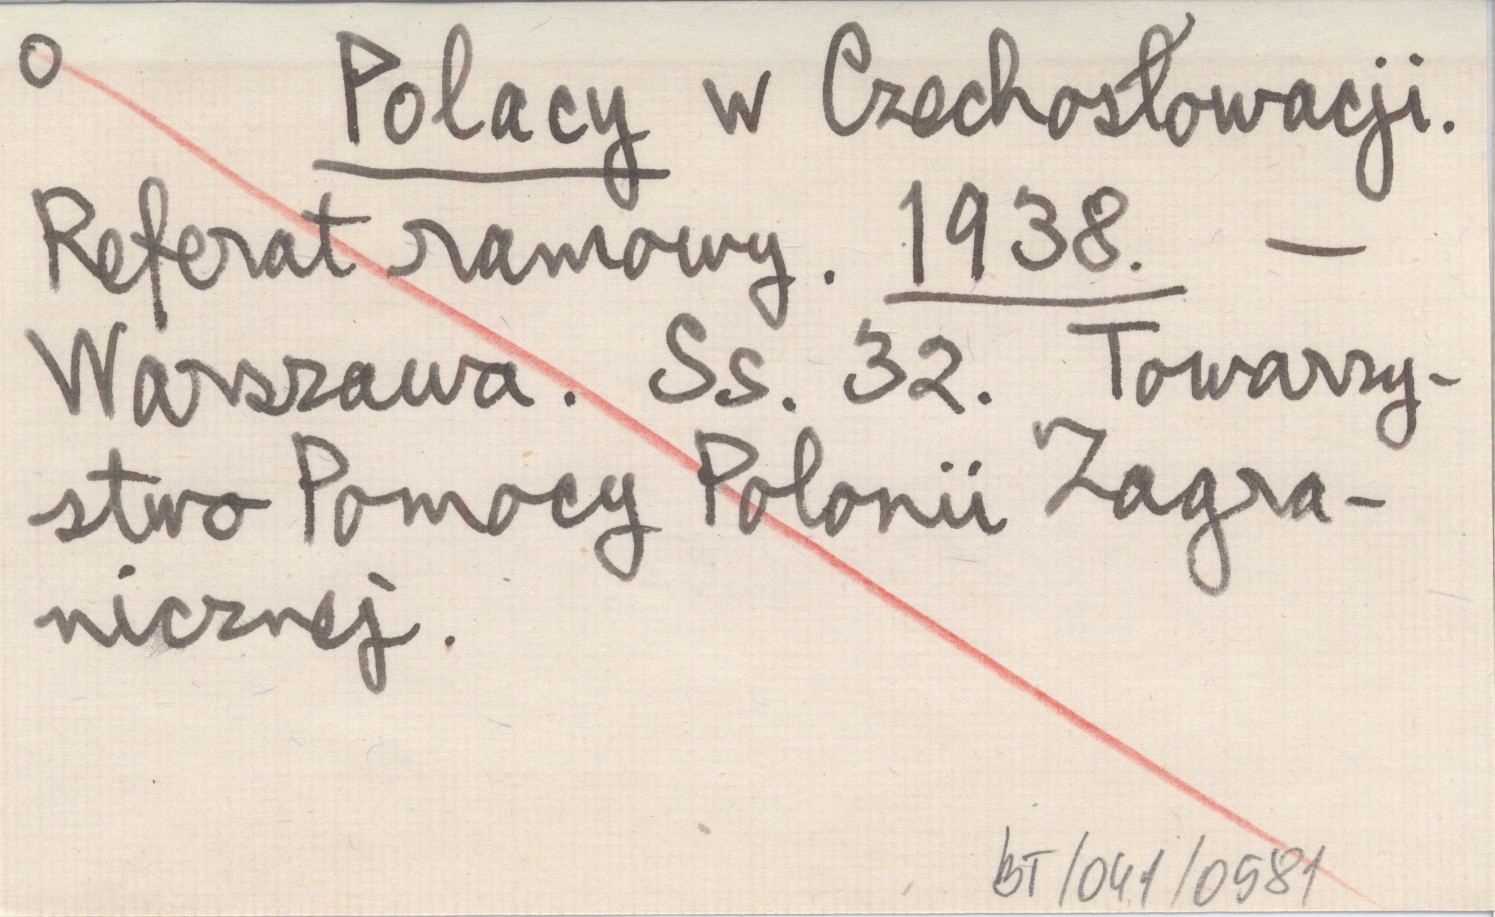 O Polacy w Czechosłowacji.
Referat ramowy. 1938. —
Warszawa. Ss. 32. Towarzy-
stwo Pomocy Polonii Zagra-
nicznej.
BT/041/0581